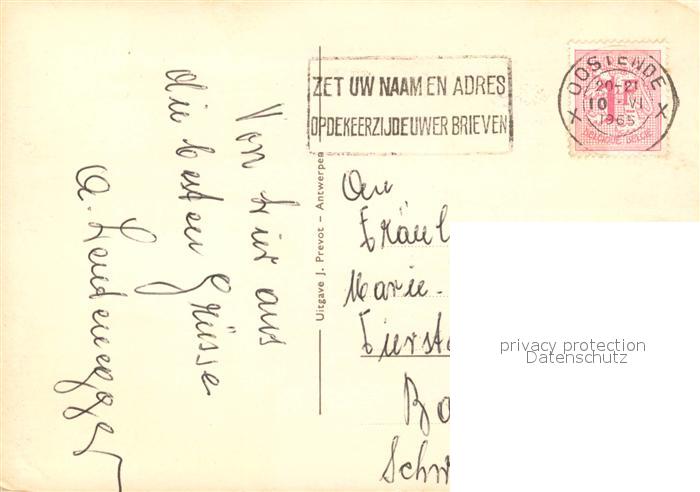 ZET UW NAAM EN ADRES
OP DE KEERZIJDE UWER BRIEVEN
OOSTENDE
20-21
10 VI
1965
X X
1F
BELGIQUE-BELGIE
Von hier aus
die besten Grüsse
A.
Uitgave J. Prevot - Antwerpen
An
Fräul
Marie-
Ba
Schw
privacy protection
Datenschutz